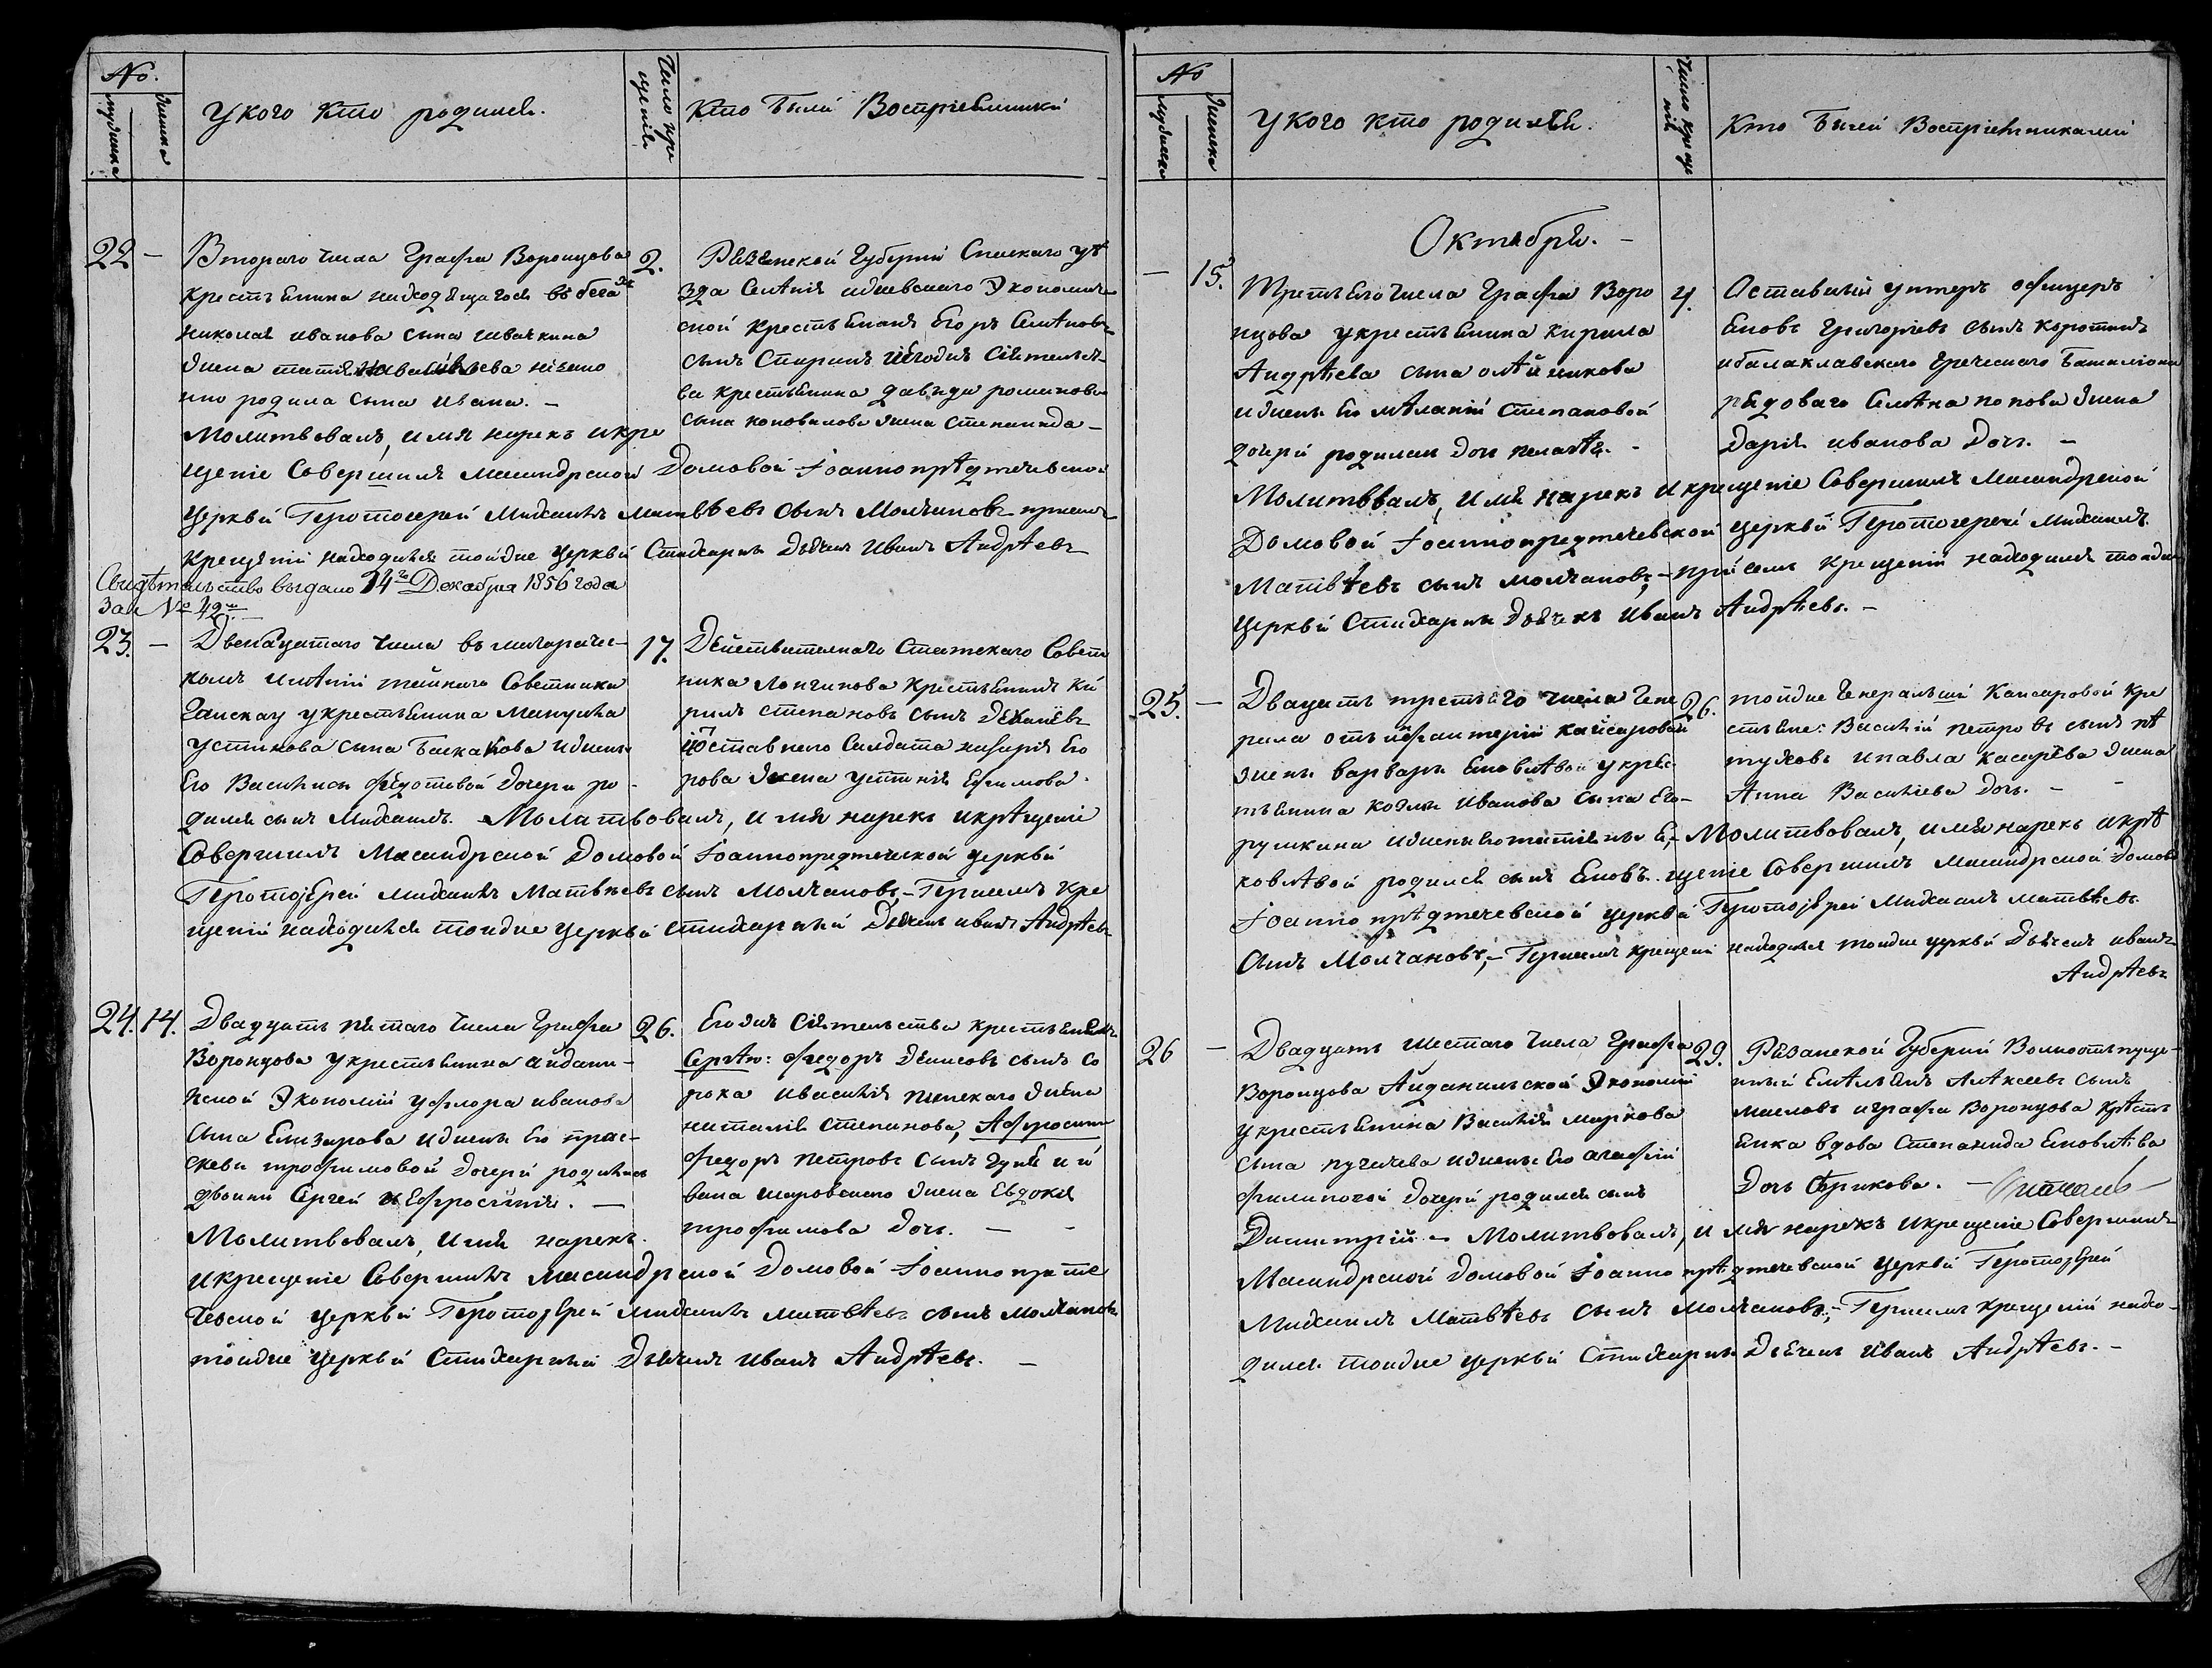 No.
мужеска
женска
У кого кто родился.
Число кре
щенія
Кто были Восприемники
22 –
Втораго числа Графа Воронцова
крестьянина находящагося в бегах
николая иванова сына ивачкина
жена татіяна
родила сына ивана. –
Молитвовалъ, имя нарекъ и кре
щеніе Совершилъ Масандрской Домовой Іоаннопрѣдтечевской
церквй Протоіерей Михаилъ Матвѣевъ сынъ Молчановъ присемъ
крещеніи находился тойже церквй Стихарны Дьячекъ Иванъ Андрѣевъ
2.
Рязанской Губерніи Спаскаго уѣ
зда Селѣнія ижевского Экономиче
ской крестьянинъ Егоръ Семѣновъ
сынъ Спиринъ иегожъ Сіятельст
ва крестьянина давыда романова
сына коновалова жена степанида –
Свидѣтельство выдано 14го Декабря 1856 года
За № 42м. –
23. –
Двенацатаго числа въ
комъ имѣніи тайнаго Советника
крестьянина
устинова сына Баскакова ижены
Его Василисы федотовой дочери ро
дился сынъ Михаилъ. Молитвовалъ, имя нарекъ икрѣщеніе
Совершилъ Масандрской Домовой Іоаннопредтеческой церквй
Протоіерей Михаилъ Матвѣевъ сынъ Молчановъ, – Присемъ кре
щеніи находился тойже церквй стихарный Дьячекъ иванъ Андрѣевъ
17.
Действителнаго Статскаго Совет
ника Лонгинова крестьянинъ Ки
рилъ степановъ сынъ
иоставнаго Салдата назарія Его
рова жена устинія Ефимова.
24. 14.
Двадцать пятаго числа Графа
Воронцова укрестьянина айдани–
лской Экономіи уфлора иванова
сына Елизарова ижены Его прас–
ковьи трофимовой дочери родились
двоини Сергей и Ефросинія. –
Молитвовалъ, имя нарекъ
икрещеніе Совершилъ масандрской Домовой Іоаннопрѣдте
чевской церквй Протоіерей михаилъ матвѣевъ сынъ молчановъ
тойже церквй Стихарный Дьячекъ иванъ Андрѣевъ. –
26.
Егожъ Сіятельства крестьянинъ
Сергѣю: федоръ денисовъ сынъ со
рока ивасилія пинскаго жена
наталія степанова, Афросинье
федоръ петровъ сынъ
вана шаровского жена Евдокія
трофимова дочь. – –
No
мужеска
женска
У кого кто родился.
Число креще
нія
Кто были Восприемниками
Октября. –
– 15.
Третьего числа Графа Воро
нцова укрестьянина кирила
Андрѣева сына олѣйникова
ижены Его мѣланіи степановой
дочери родилась дочь пелагѣя. –
Молитввалъ, имя нарекъ икрещеніе Совершилъ Масандрской
Домовой Іоаннопредтечевской церквй Протоіерей михаилъ
Матвѣевъ сынъ молчановъ, – присемъ крещеніи находился тойже
церквй Стихарны Дьячекъ иванъ Андрѣевъ. –
4.
Оставный унтеръ офицеръ
Еловъ Григорьевъ сынъ коротинъ
ибалаклавского Греческого Баталіона
рядоваго Семѣна попова жена
Дарія иванова Дочь. –
25. –
Двацать третьяго числа Гене
рала отъинфантеріи кайсаровой
жены варвары Яковлѣвой укрес
тьянина козмы Иванова сына Его–
рушкина ижены Его татіяны Я–
ковлѣвой родился сынъ Яковъ.
26.
тойже Генеральши Кайсаровой кре
стьяне: Василій петровъ сынъ пѣ
туховъ ипавла касарева жена
Анна Василіева Дочь. – –
Молитвовалъ, имя нарекъ икрѣ
щеніе Совершилъ Масандрской Домово
Іоаннопрѣдтечевской церквй Протоіерей Михаилъ матвѣевъ
Сынъ Молчановъ, – Присемъ крещеніи находился тойже церквй Дьячекъ иванъ
Андрѣевъ
26 –
Двадцать шестаго числа Графа
Воронцова Айданильской Экономіи
укрестьянина Василія маркова
сына пучечева ижены Его агафіи
филиповой дочери родился сынъ
Димитрій – Молитвовалъ, имя нарекъ икрещеніе Совершилъ
Масандрской Домовой Іоаннопрѣдтечевской церквй Протоіерей
михаилъ Матвѣевъ Сынъ молчановъ, – Присемъ крещеніи нахо–
дился тойже церквй Стихарны Дьячекъ Иванъ Андрѣевъ. –
29.
Рязанской Губерніи Волноотпуще–
нный Емѣльянъ Алѣксеевъ сынъ
масловъ играфа Воронцова крѣсть
янка вдова Степанида Яковлѣва
дочь –